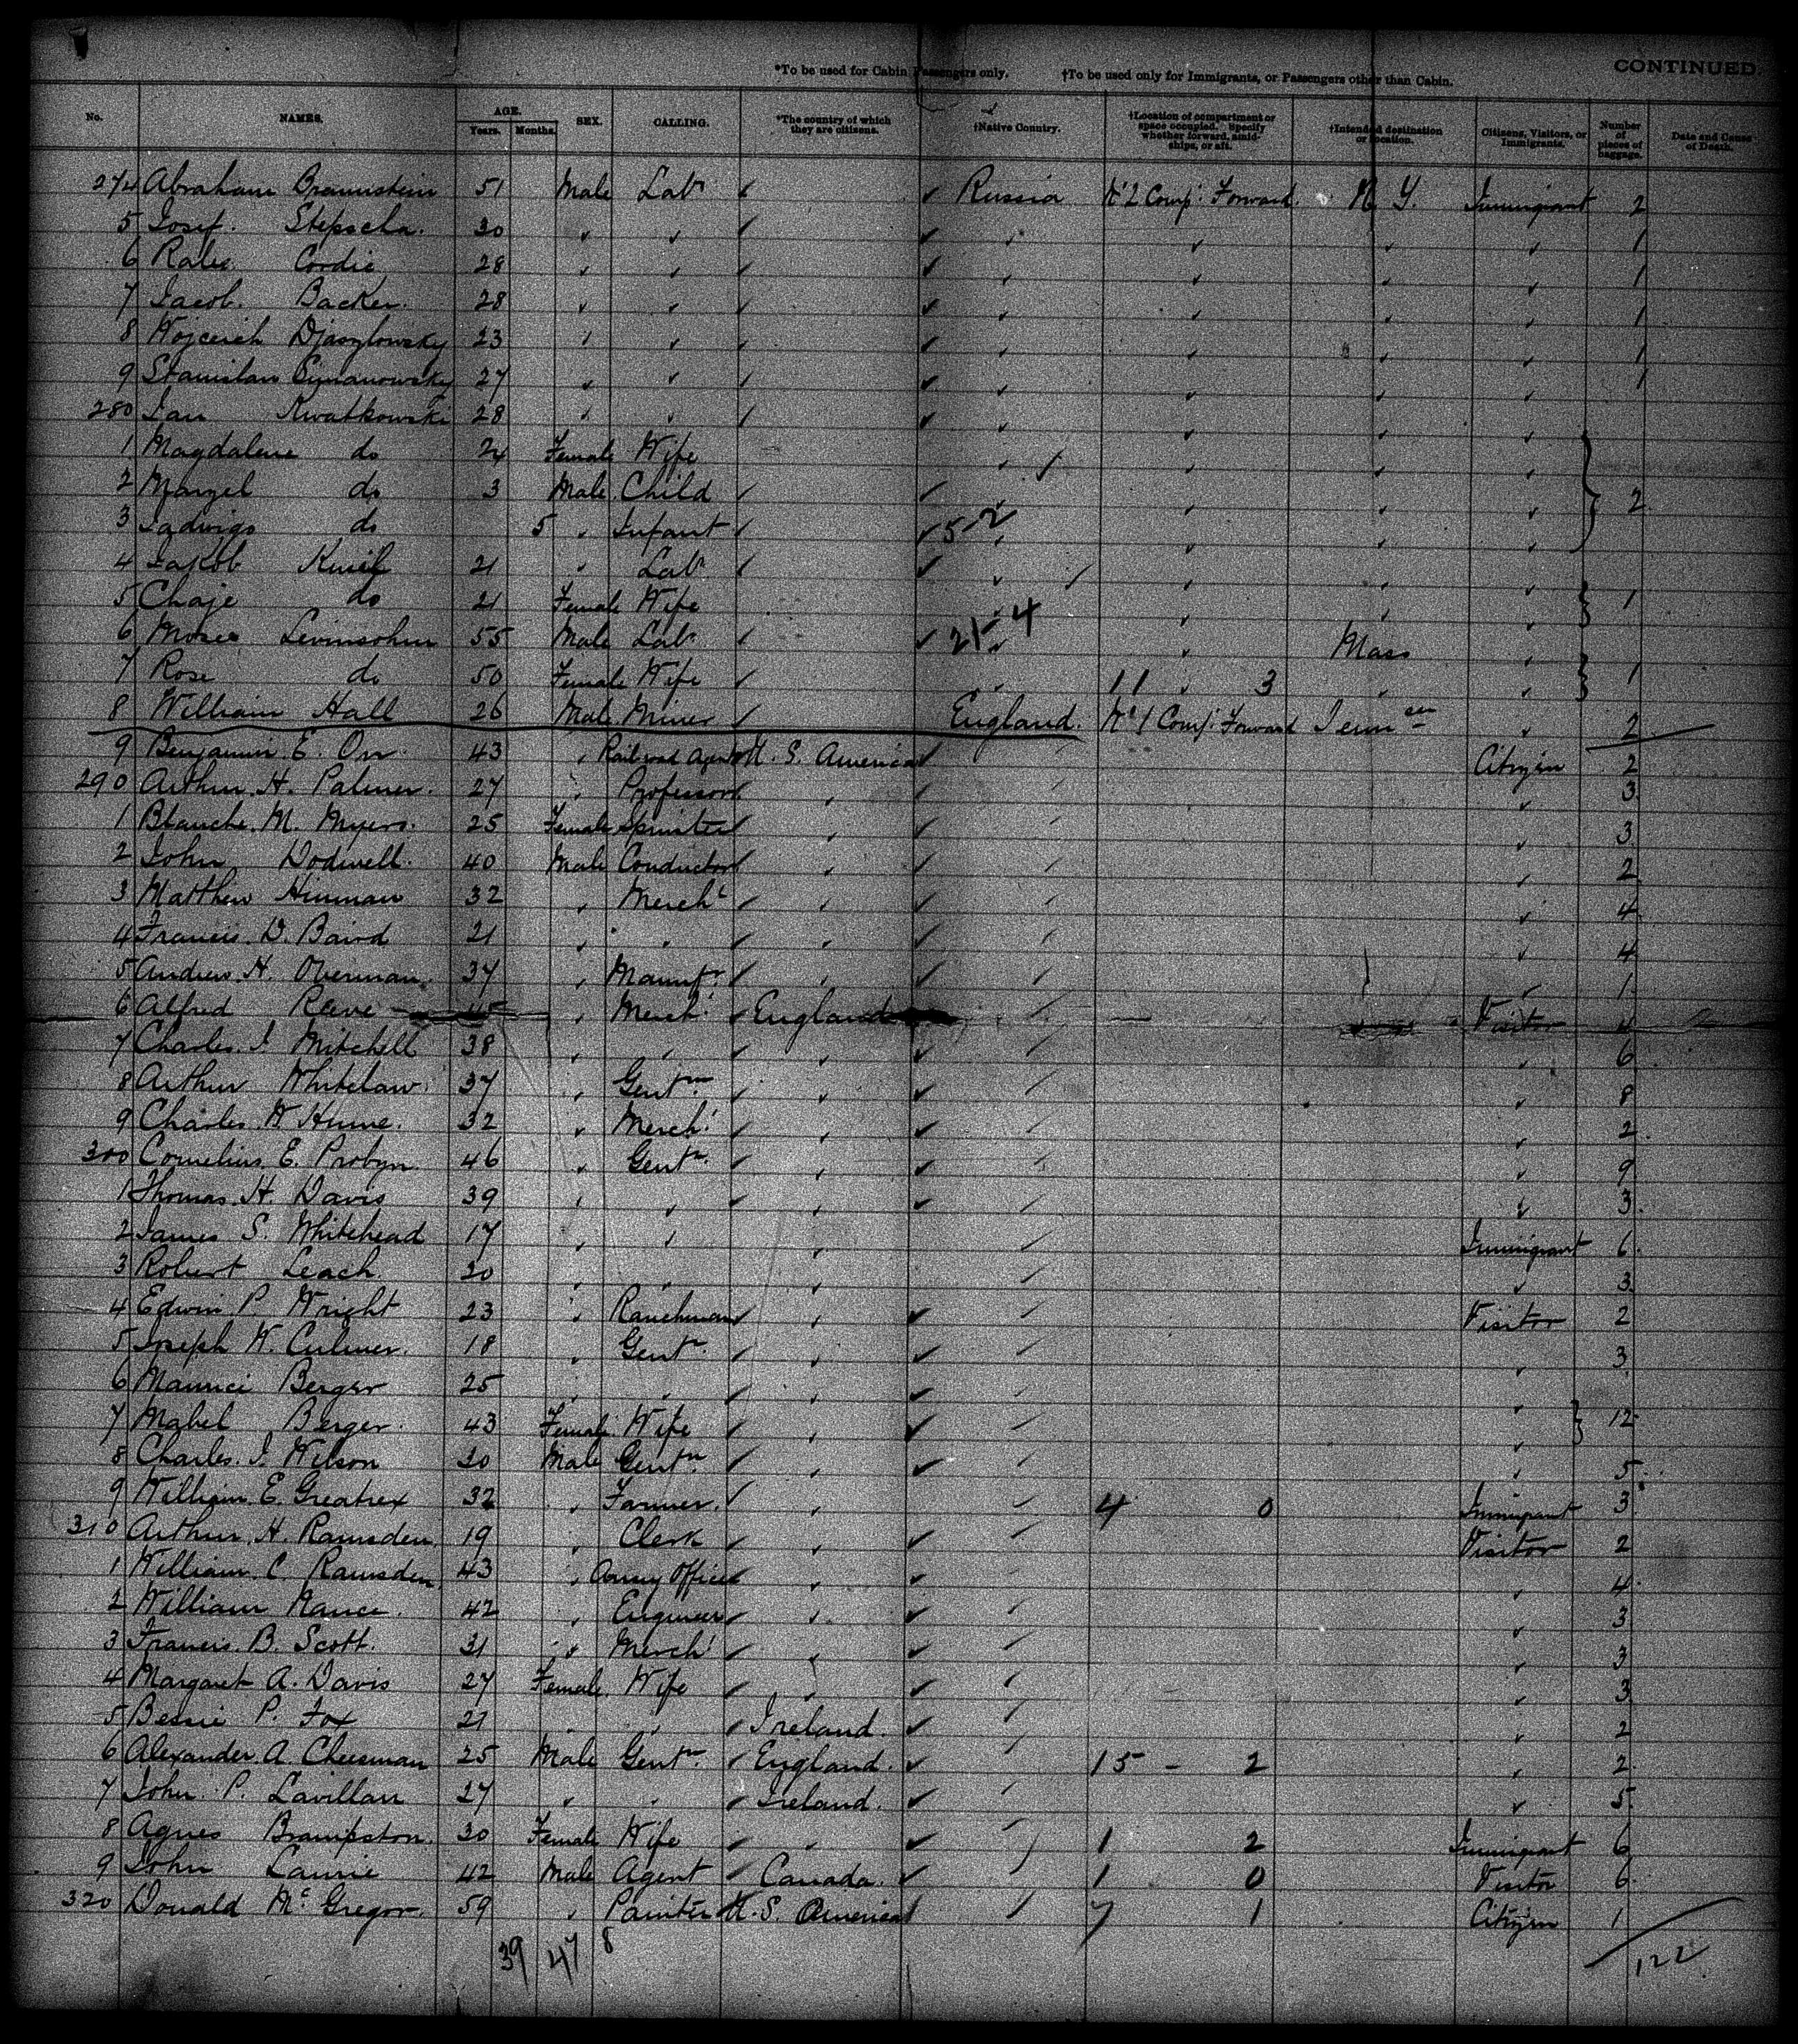 CONTINUED.
*To be used for Cabin Passengers only. †To be used only for Immigrants, or Passengers other than Cabin.
No. NAMES. AGE. Years. Months. SEX. CALLING. *The country of which they are citizens. †Native Country. †Location of compartment or space occupied. Specify whether forward, amidships, or aft. †Intended destination or location. Citizens, Visitors, or Immigrants. Number of pieces of baggage. Date and Cause of Death.
274 Abraham Braunstein 51 Male Labr Russia No 2 Comp. Forward N. Y. Immigrant 2
5 Josif. Stepscha. 30 1
6 Cordie 28 1
7 Jacob. Backer. 28 1
8 Wojcerich 23 1
9 Stanislaw 27 1
280 Jan Kwatkowski 28
1 Magdalene do 24 Female Wife
2 do 3 Male Child 2
3 Jadwiga do 5 Infant 5-2
4 Jakob 21 Labr
5 Chaje do 21 Female Wife 1
6 Moses Levinsohn 55 Male Labr 21-4 Mass
7 Rose do 50 Female Wife 11 3 1
8 William Hall 26 Male Miner England. No 1 Comp. Forward 2
9 Benjamin E. Orr 43 Railroad Agent U. S. America Citizen 2
290 Arthur H. Palmer. 27 Professor 3
1 Blanche M. Myers. 25 Female Spinster 3
2 John Dodwell. 40 Male Conductor 2
3 Matthew Hinman 32 Mercht 4
4 Francis D. Baird 21 4
5 Andrew H. Overman 37 Manufr 1
6 Alfred Reeve 45 Merch! England Visitor
7 Charles J. Mitchell 38 6
8 Arthur Whitelaw. 37 Gentm 8
9 Charles W Hume. 32 Merch! 2
300 Cornelius E. Probyn. 46 Gentn. 9
1 Thomas H. Davis 39 3
2 James S. Whitehead 17 Immigrant 6
3 Robert Leach 20 3
4 Edwin P. Wright 23 Ranchman Visitor 2
5 Joseph W. Culmer. 18 Gentn. 3
6 Maurice Berger 25
7 Mabel Berger. 43 Female Wife 12
8 Charles J. Wilson 20 Male Gentn 5
9 William E. Greatrex 32 Farmer. 4 0 Immigrant 3
310 Arthur H. Ramsden 19 Clerk Visitor 2
1 William C Ramsden 43 Army Officer 4
2 William Rance. 42 Engineer 3
3 Francis B. Scott. 31 Merch! 3
4 Margaret A. Davis 27 Female Wife 3
5 Bessie P. Fox 21 Ireland. 2
6 Alexander A. Cheesman 25 Male Gentm England. 15 - 2 2
7 John P. Lavillan 27 Ireland. 5
8 Agnes Brampston. 30 Female Wife 1 2 Immigrant 6
9 John Laurie 42 Male Agent Canada 1 0 Visitor 6
320 Donald Mc Gregor. 59 Painter U. S. America 7 1 Citizen 1
39 47 8 122